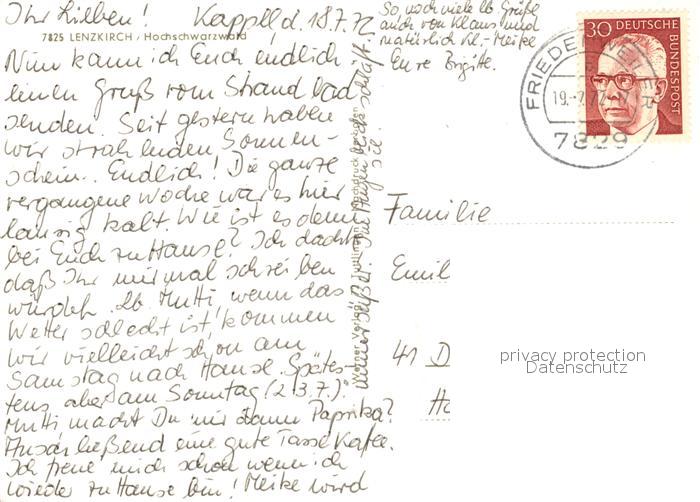 Ihr Lieben! Kappel, d. 18.7.72
7825 LENZKIRCH / Hochschwarzwald
Nun kann ich Euch endlich
einen Gruß vom Strandbad
senden. Seit gestern haben
wir strahlenden Sonnen-
schein. Endlich! Die ganze
vergangene Woche war es hier
lausig kalt. Wie ist es denn
bei Euch zu Hause? Ich dachte
daß Ihr mir mal schreiben
würdet. Lb Mutti, wenn das
Wetter schlecht ist, kommen
wir vielleicht schon am
Samstag nach Hause. Spätes-
tens aber am Sonntag (23.7.).
Mutti, machst Du mir dann Paprika?
Anschließend eine gute Tasse Kaffee.
Ich freue mich schon wenn ich
wieder zu Hause bin! Meike wird
immer süßer. Im Augenblick schläft sie.
So, noch viele lb Grüße
auch von Klaus und
natürlich kl.-Meike
Eure Brigitte.
30 DEUTSCHE BUNDESPOST
FRIEDENWEILER
19.-7.72
7829
Familie
Emil
41 D
Ha
privacy protection
Datenschutz